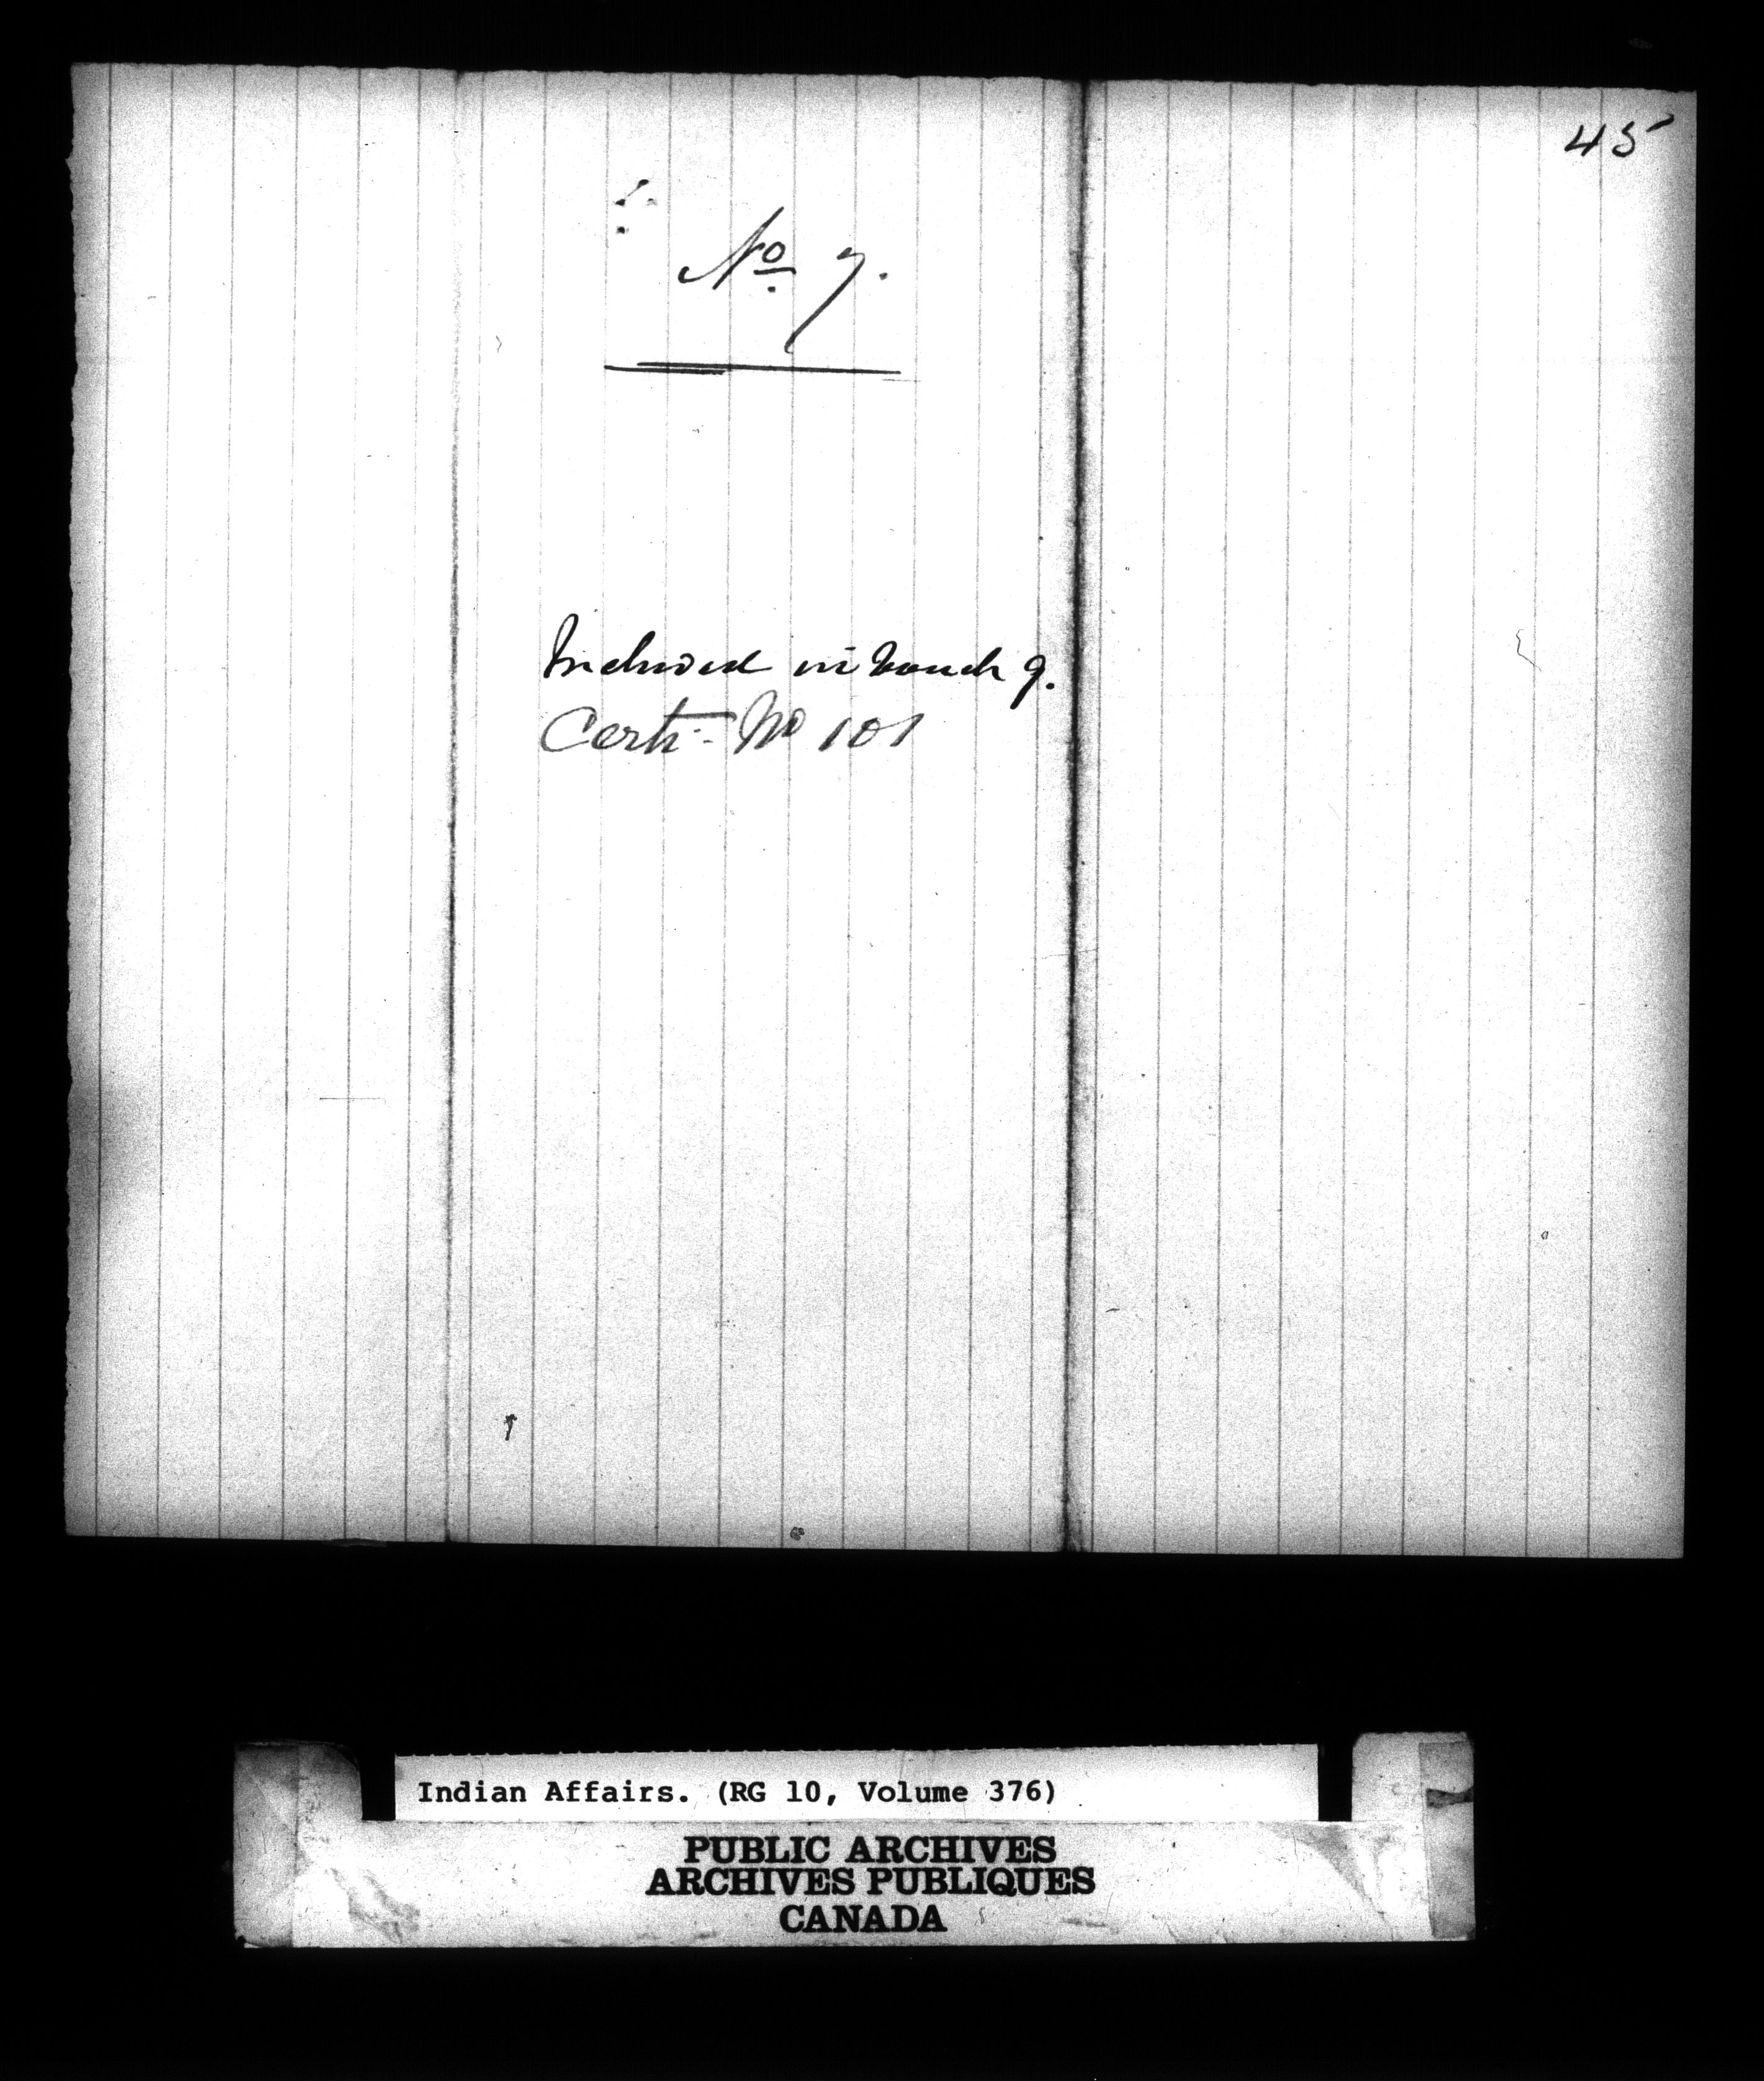 45
No 7.
Inclused in vouch 9.
Certi. No 101
Indian Affairs. (RG 10, Volume 376)
PUBLIC ARCHIVES
ARCHIVES PUBLIQUES
CANADA